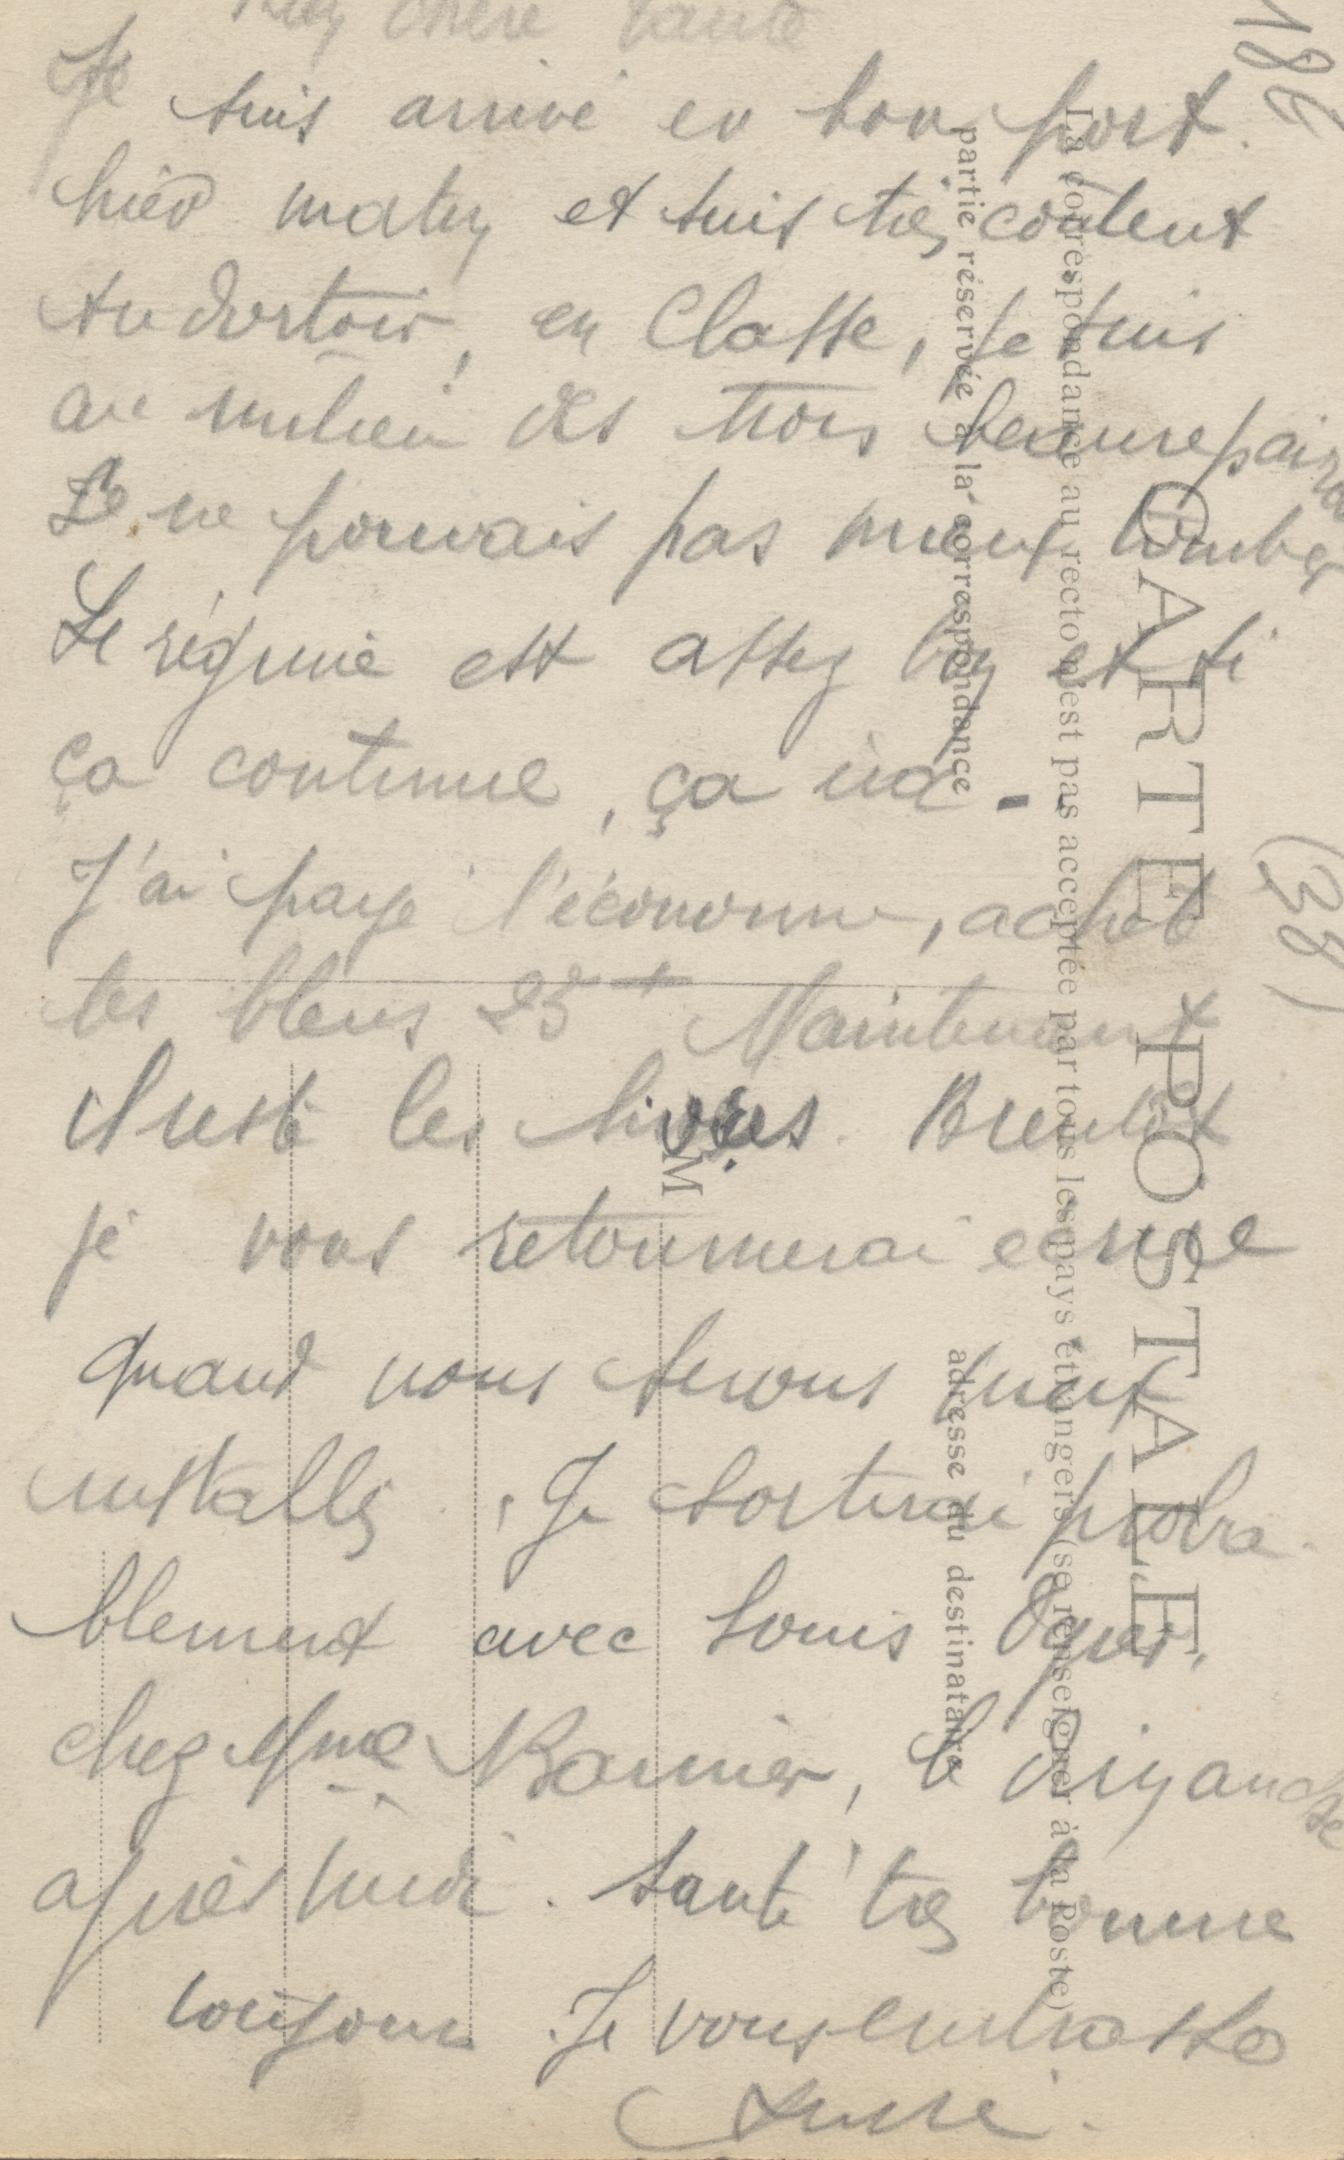 chère tante
Je suis arrivé en bon port.
hier matin et suis très content
Au dortoir, en Classe, je suis
au milieu des trois beaurepaires
Je ne pouvais pas mieux tomber
Le régime est assez bon et si
ça continue, ça ira -.
J'ai payé l'économe, acheté
les bleus 25 Maintenant
il reste les livres. Bientôt
je vous retournerai écrire
quand nous serons mieux
installés. Je sortirai proba
blement avec Louis
chez Mme Barnier, le dimanche
après midi. Santé très bonne
toujours Je vous embrasse
CARTE POSTALE
La correspondance au recto n'est pas acceptée par tous les pays étrangers (se renseigner à la Poste)
partie réservée à la correspondance
adresse du destinataire
M
(38)